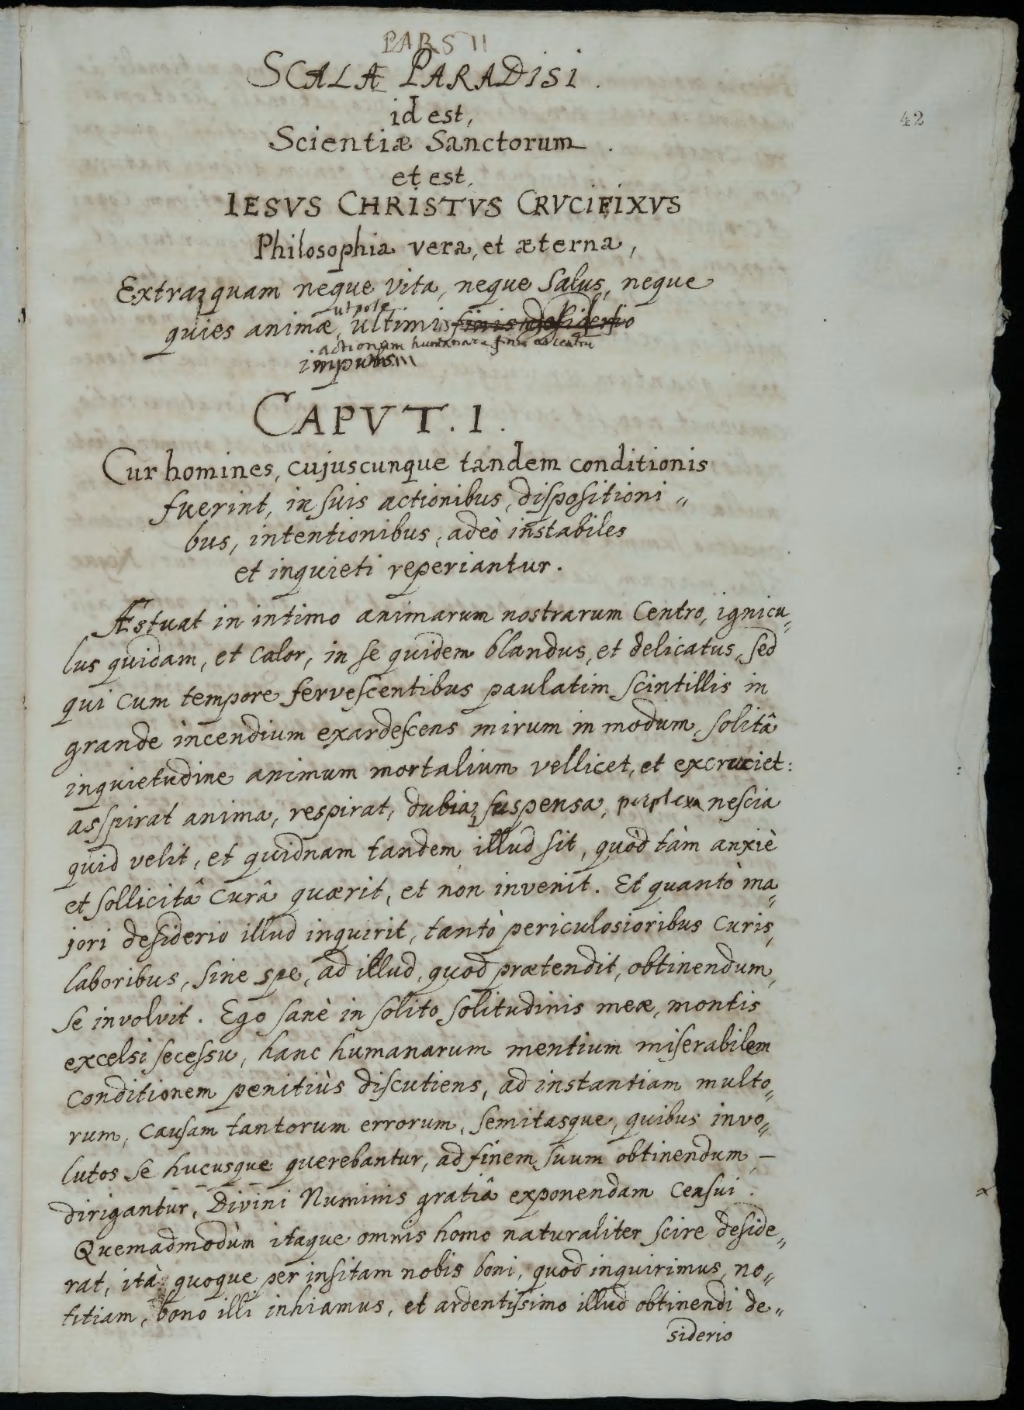 PARS II
SCALÆ PARADISI.
42
id est,
Scientiæ Sanctorum.
et est,
IESVS CHRISTVS CRVCIFIXVS
Philosophia vera, et æterna,
Extra quam neque vita, neque salus, neque
utpote
quies animæ, ultimi
actionum humanarum finis
CAPVT. I.
Cur homines, cujuscunque tandem conditionis
fuerint, in suis actionibus, dispositioni„
bus, intentionibus, adeò instabiles
et inquieti reperiantur.
Æstuat in intimo animarum nostrarum Centro, ignicu„
lus quidam, et Calor, in se quidem blandus, et delicatus, sed
qui cum tempore fervescentibus paulatim scintillis in
grande incendium exardescens mirum in modum, solitâ
inquietudine animum mortalium vellicet, et excruciet:
asspirat anima, respirat, dubia, suspensa, perplexa nescia
quid velit, et quidnam tandem illud sit, quòd tàm anxiè
et sollicitâ curâ quærit, et non invenit. Et quantò ma„
jori desiderio illud inquirit, tantò periculosioribus curis,
laboribus, sine spe, ad illud, quod prætendit, obtinendum,
se involvit. Ego sanè in solito solitudinis meæ, montis
excelsi secessu, hanc humanarum mentium miserabilem
conditionem penitiùs discutiens, ad instantiam multo„
rum, causam tantorum errorum, semitasque, quibus invo„
lutos se hucusque querebantur, ad finem suum obtinendum —
dirigantur, Divini Numinis gratiâ exponendam censui.
Quemadmodùm itaque omnis homo naturaliter scire deside„
rat, ità quoque per insitam nobis boni, quod inquirimus, no„
titiam, bono illi inhiamus, et ardentissimo illud obtinendi de„
siderio